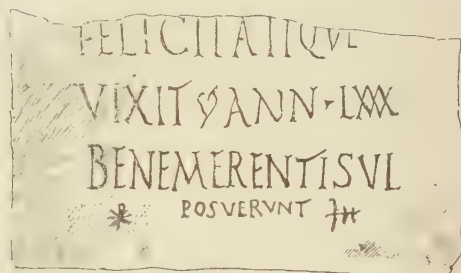 FELICITATIQVE
VIXIT ANN · LXXX
BENEMERENTISVL
☧ POSVERVNT